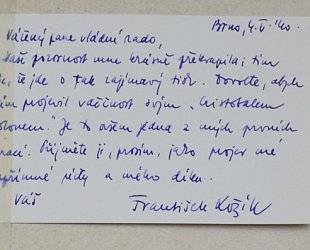 Brno, 4. V. '40.
Vážený pane vládní rado,
Vaší pozornost mne krásně překvapila; tím
že jde o tak zajímavý tisk. Dovolte, abych
projevil vděčnost svým „Cristobalem
Colonem.“ Je to ovšem jedna z mých prvních
prací. Přijměte ji, prosím, jako projev mé
upřímné úcty a mého díku.
Váš
František Kožík